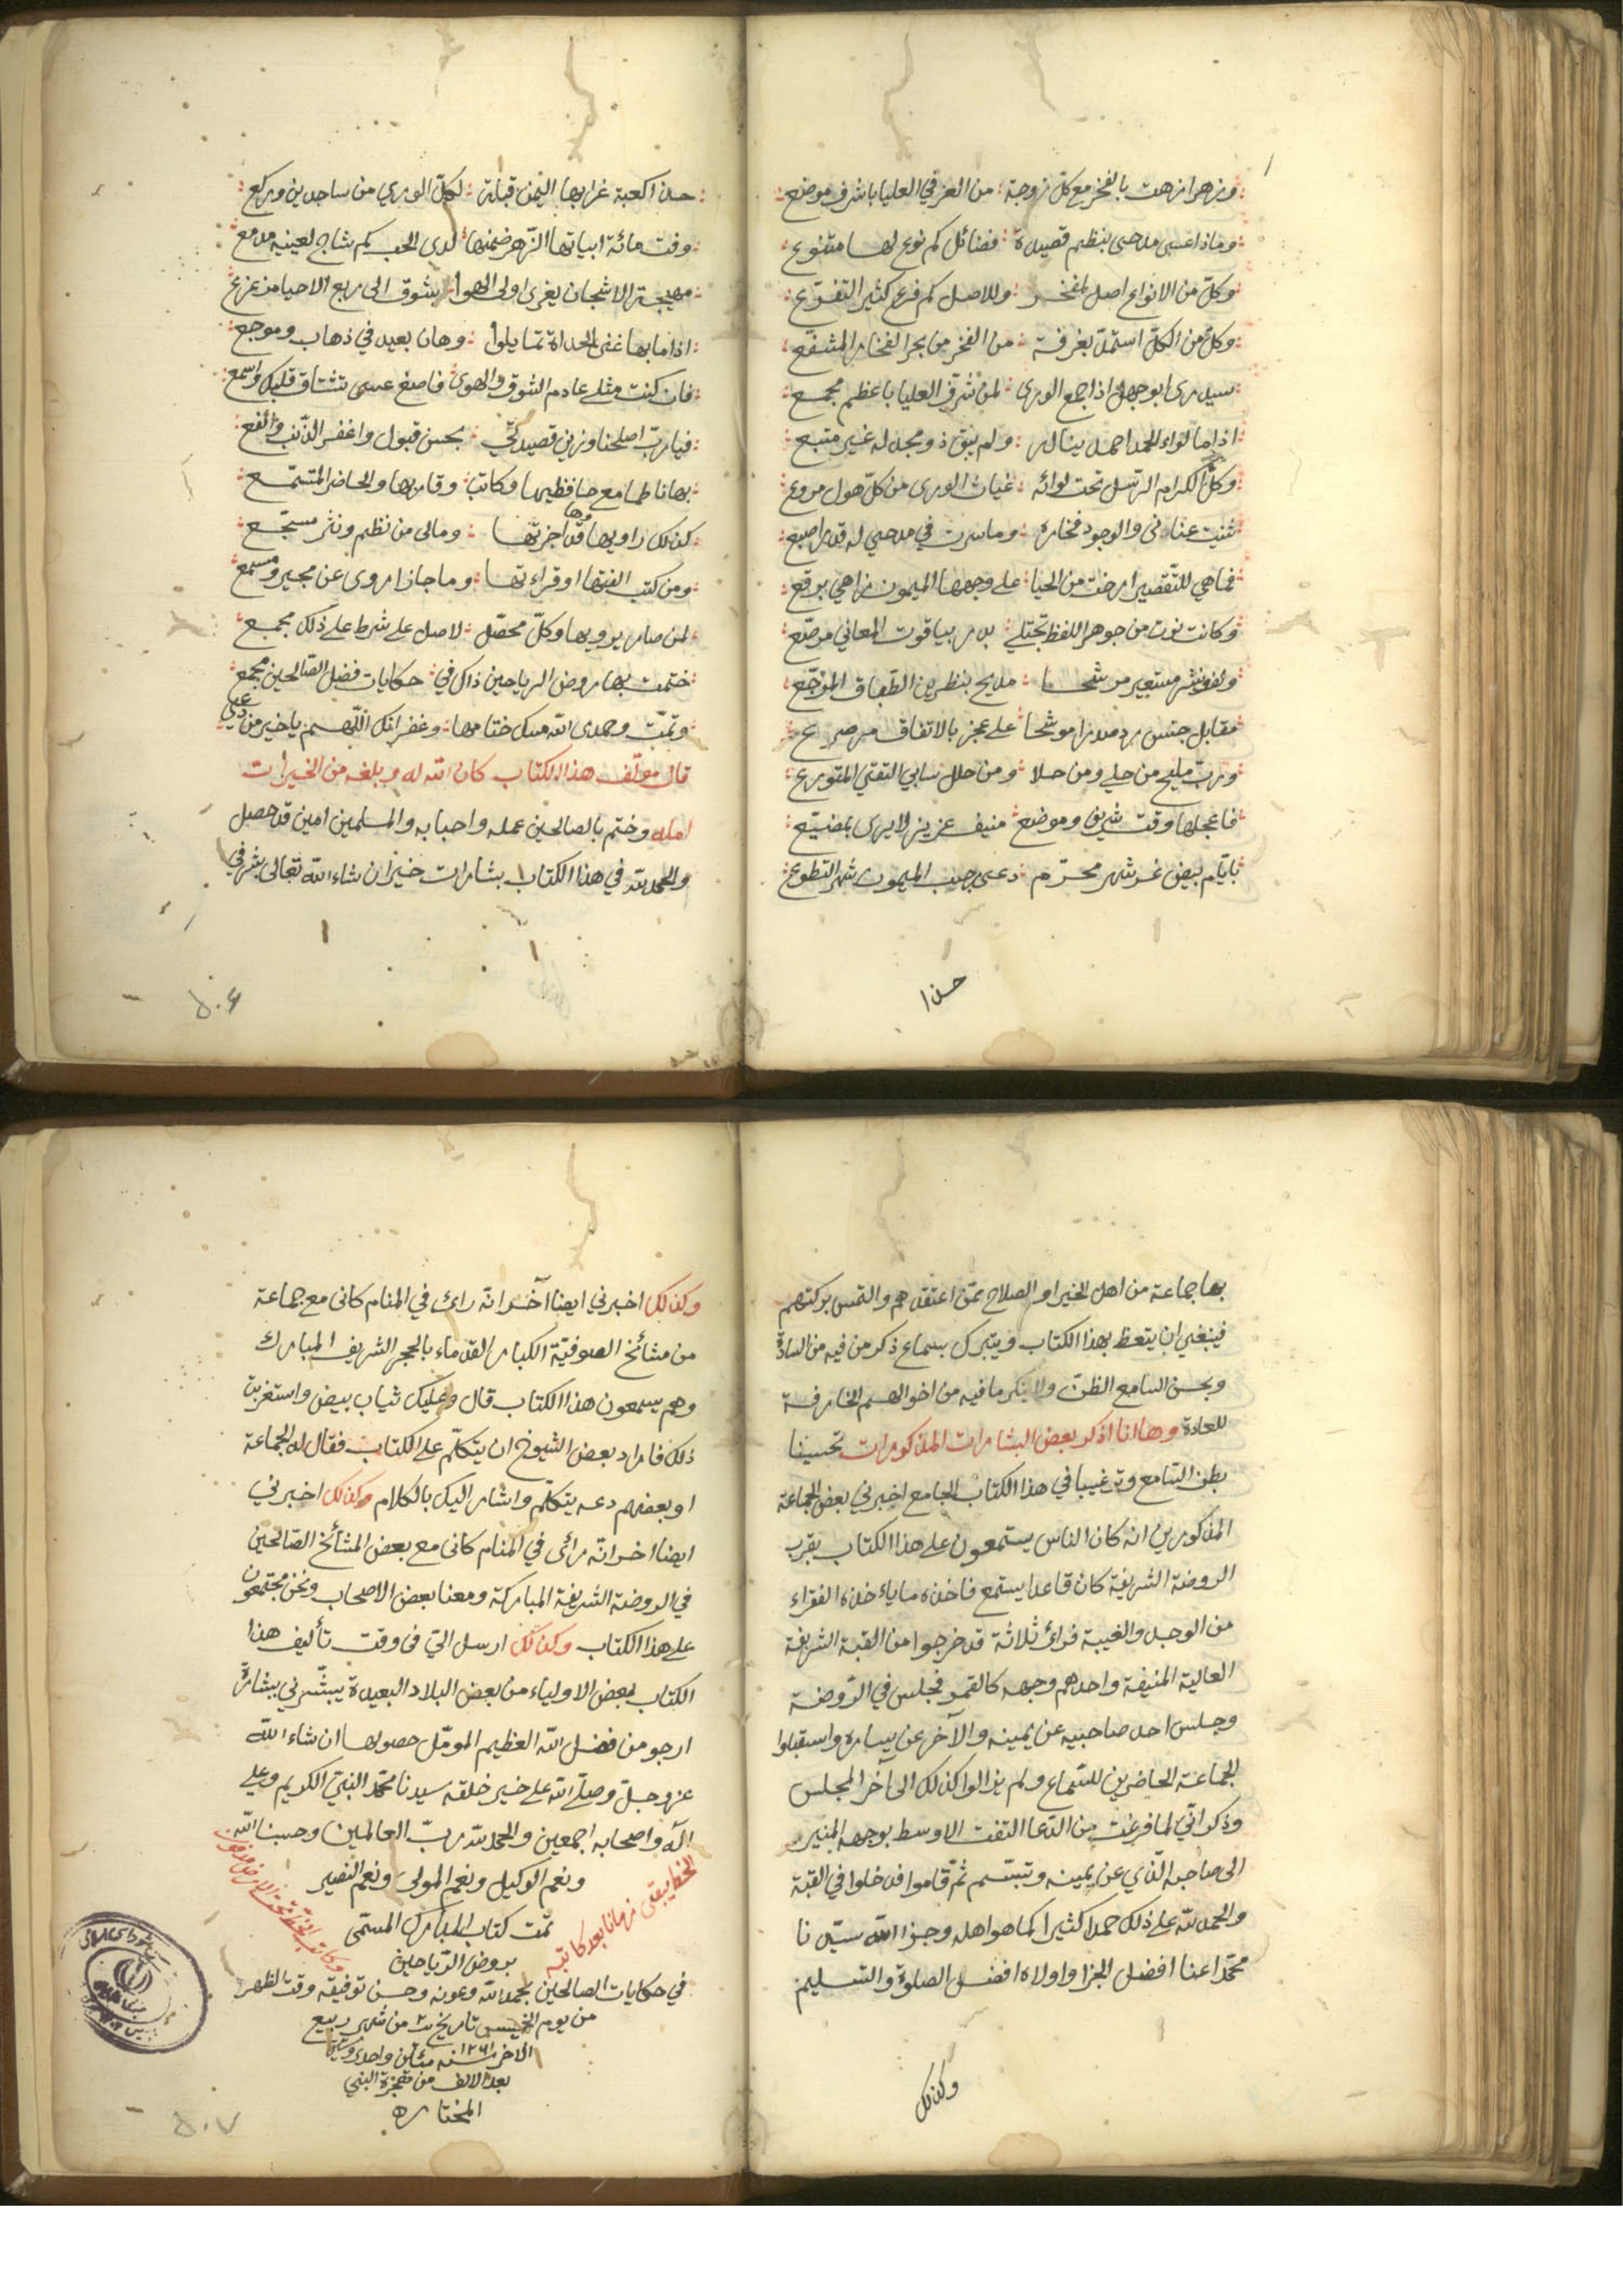 وزهرا زهت بالفخر مع كلّ زوجة من العز في العليا باشرف موضع
وماذا عسى مدحى بنظم قصيدة فضائل كم نوع لها متنوع
وكلّ من الانواع اصل لمفخر وللاصل كم فرع كثير التفرّع
وكلّ من الكلّ استملّ بغرفة من الفخر من بحر الفخار المشفّع
سيدرى ابو جهل اذا جمع الورى لمن شرف العليا باعظم مجمع
اذا ما لواء الحمد احمد يناله ولم يبق ذو مجد له غير متبع
وكلّ الكرام الرّسل تحت لوائه غياث الورى من كلّ هول مروع
ثنيت عنانى والوجود فخاره وما سرت في مدحي له قدر اصبع
فما هي للتّقصير ارخت من الحيا على وجهها الميمون زاهي برقع
وكانت نوت من جوهر اللفظ تجتلى بدر بياقوت المعاني مرصّع
ولفونشر مستعير مرشحا مديح بنظرين الطباق الموزّع
مقابل جنس رد صدرا موشحا على عجز بالاتفاق مرصع
وربّ مليح من حلى ومن حلا ومن حلل سابي التقي المتورع
فاعجلها وقت شريف وموضع منيف عزيز لا يرى بمضيّع
بايّام بيض غر شهر محرّم دعى رجب الميمون شهر التطوع
حذا
حذا كعبة غرابها اليمن قبلة لكلّ الورى من ساجدين وركع
وفت مائة ابياتها الزّهر ضمنها لدى الحب كم شاج لعينيه مدمع
مهيجة الاشجان يغرى اولى الهوا بشوق الى ربع الاحبا مزعزع
اذا ما بها غنى الحداة تمايلوا وهان بعيد في ذهاب وموجع
فان كنت مثلى عادم الشوق والهوى فاصغ عسى تشتاق قلبك واسمع
فيا ربّ اصلحنا وزين قصيدتي بحسن قبول واغفر الذّنب وانفع
بها ناظما مع حافظيها وكاتبا وقار بها والحاضر المتسمّع
كذلك راويها وها قد اجزتها ومالى من نظم ونثر مسجّع
ومن كتب الفتها او قراءتها وما جاز اروى عن مجيز ومسمع
لمن صار يرويها وكلّ محصّل لاصل على شرط على ذلك مجمع
ختمت بها روض الرياحين ذاك في حكايات فضل الصّالحين مجمع
وتمّت وحمدى الله مسك ختامها وغفرانك اللّهم يا خير من دعى
قال مؤلّف هذا الكتاب كان الله له وبلغه من الخيرات
امله وختم بالصالحين عمله واحبابه والمسلمين امين قد حصل
والحمد لله في هذا الكتاب بشارات خير ان شاء الله تعالى بشرني
٥٠٦
بها جماعة من اهل الخير او الصلاح ممّن اعتقدهم والتمس بركتهم
فينبغي ان يتعظ بهذا الكتاب ويتبرك بسماع ذكر من فيه من السادة
ويحسن السامع الظنّ ولا ينكر ما فيه من احوالهم الخارقة
للعادة وها انا اذكر بعض البشارات المذكورات تحسينا
بظن السّامع وترغيبا في هذا الكتاب الجامع اخبرني بعض الجماعة
المذكورين انه كان الناس يستمعون على هذا الكتاب بقرب
الروضة الشريفة كان قاعدا يستمع فاخذه ما ياءخذه الفقراء
من الوجد والغيبة فرائ ثلاثة قد خرجوا من القبة الشريفة
العالية المنيفة واحدهم وجهه كالقمر فجلس في الرّوضة
وجلس احد صاحبيه عن يمينه والآخر عن يساره واستقبلوا
الجماعة الحاضرين للسّماع ولم يزالوا كذلك الى آخر المجلس
وذكر انّي لما فرغت من الدّعا التفت الاوسط بوجهه المنير
الى صاحبه الّذي عن يمينه وتبسّم ثمّ قاموا فدخلوا في القبّة
والحمد لله على ذلك حمدا كثيرا كما هو اهله وجزا الله سيّدنا
محمّدا عنا افضل الجزا واولاه افضل الصلوة والتسليم
وكذلك
وكذلك اخبرني ايضا آخر انّه رائ في المنام كانى مع جماعة
من مشائخ الصوفيّة الكبار القدماء بالحجر الشريف المبارك
وهم يسمعون هذا الكتاب قال وعليك ثياب بيض واستغربت
ذلك فاراد بعض الشيوخ ان يتكلّم على الكتاب فقال له الجماعة
او بعضهم دعه يتكلم واشار اليك بالكلام وكذلك اخبرني
ايضا اخر انّه رائى في المنام كانى مع بعض المشائخ الصّالحين
في الروضة الشريفة المباركة ومعنا بعض الاصحاب ونحن مجتمعون
على هذا الكتاب وكذلك ارسل الىّ فى وقت تأليف هذا
الكتاب بعض الاولياء من بعض البلاد البعيدة يبشّرني ببشارة
ارجو من فضل الله العظيم المومّل حصولها ان شاء الله
عزوجلّ وصلّى الله على خير خلقه سيدنا محمّد النبيّ الكريم وعلى
اله واصحابه اجمعين والحمد لله ربّ العالمين وحسبنا الله
ونعم الوكيل ونعم المولى ونعم النصير
الخط يبقى زمانا بعد كاتبه
وكاتب الخط تحت الارض مدفون
تمّت كتاب المبارك المسمّى
بروض الرّياحين
في حكايات الصالحين بحمد الله وعونه وحسن توفيقه وقت الظهر
من يوم الخميس تاريخ من شهر ربيع
الاخر سنه ١٢٦١ مئتين واحد وستين
بعد الالف من هجرة النبي
المختار
٥٠٧